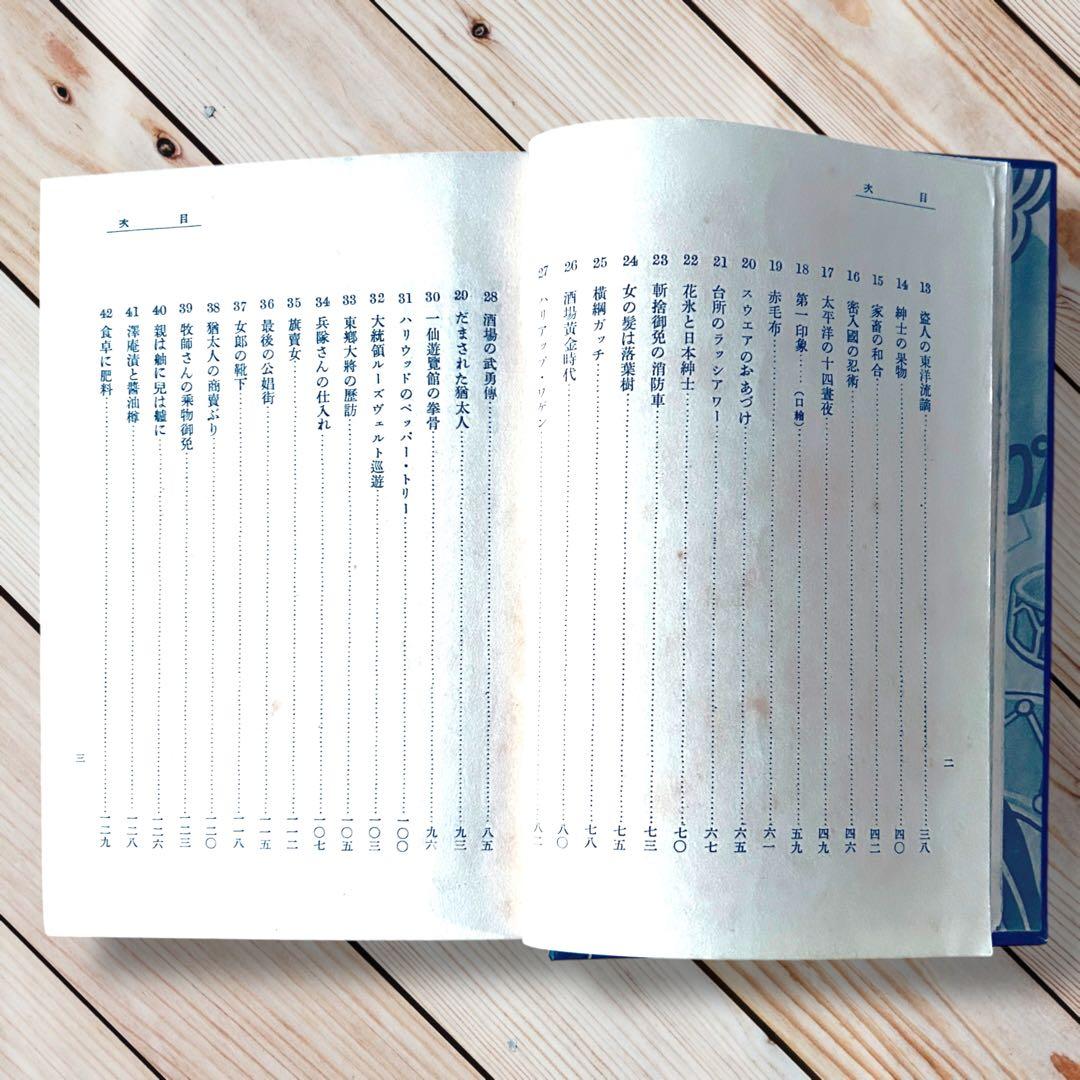 目次
13 盜人の東洋流謫 三八
14 紳士の果物 四〇
15 家畜の和合 四二
16 密入國の忍術 四六
17 太平洋の十四晝夜 四九
18 第一印象……(口繪) 五九
19 赤毛布 六一
20 スウエアのおあづけ 六五
21 台所のラッシアワー 六七
22 花氷と日本紳士 七〇
23 斬捨御免の消防車 七三
24 女の髮は落葉樹 七五
25 横綱ガッチ 七八
26 酒場黃金時代 八〇
27 ハリアップ・ワゲン 八二
二
目次
28 酒場の武勇傳 八五
29 だまされた猶太人 九三
30 一仙遊覽館の拳骨 九六
31 ハリウッドのペッパー・トリー 一〇〇
32 大統領ルーズヴェルト巡遊 一〇三
33 東郷大將の歷訪 一〇五
34 兵隊さんの仕入れ 一〇七
35 旗賣女 一一二
36 最後の公娼街 一一五
37 女郎の靴下 一一八
38 猶太人の商賣ぶり 一二〇
39 牧師さんの乘物御免 一二三
40 親は舳に兒は艫に 一二六
41 澤庵漬と醬油樽 一二八
42 食卓に肥料 一二九
三